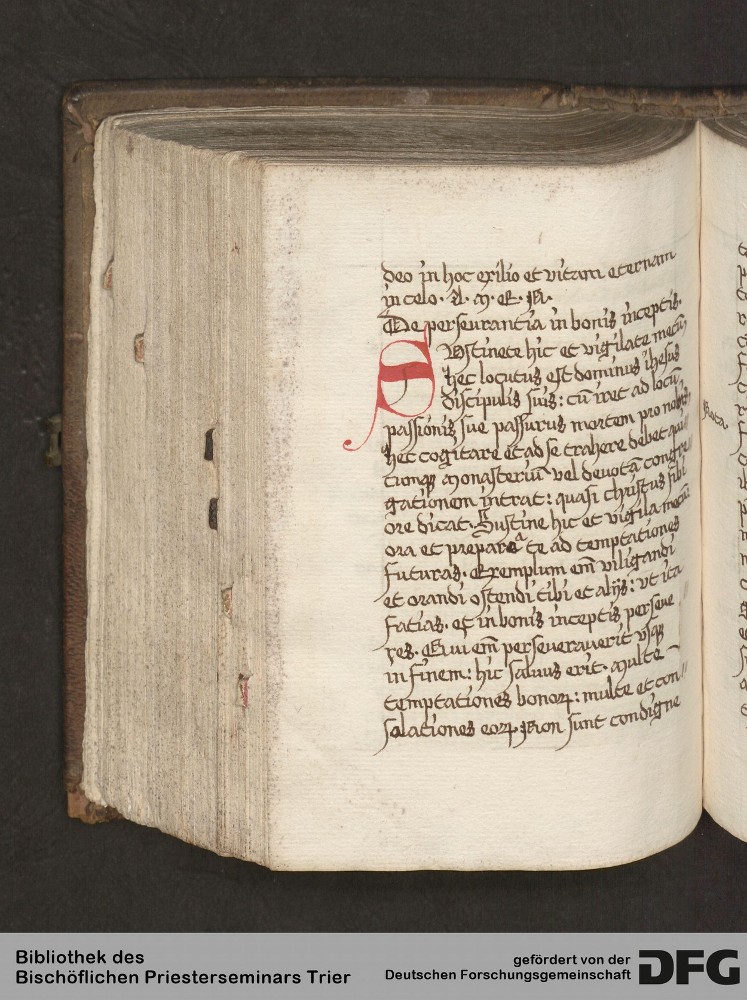 deo in hoc exilio et vitam eternam
in celo. A. M. E. N.
De perseurantia in bonis inceptis.
SVstinete hic et vigilate mecū,
hec locutus est dominus ihesus
discipulis suis: cū iret ad locū
passionis sue passurus mortem pro nobis
hec cogitare et ad se trahere debet qui
cunqꝫ monasteriū vel deuotā congre
gationem intrat: quasi christus sibi
ore dicat. Sustine hic et vigila mecū:
ora et prepara te ad temptationes
futuras. Exemplum em̄ viligandi
et orandi ostendi tibi et alijs: vt ita
facias. et in bonis inceptis perseue
res. Qui em̄ perseuerauerit vsqꝫ
in finem: hic saluus erit. multe
temptationes bonoꝝ: multe et con
solationes eoꝝ. Non sunt condigne
Nota
Bibliothek des
Bischöflichen Priesterseminars Trier
gefördert von der
Deutschen Forschungsgemeinschaft
DFG